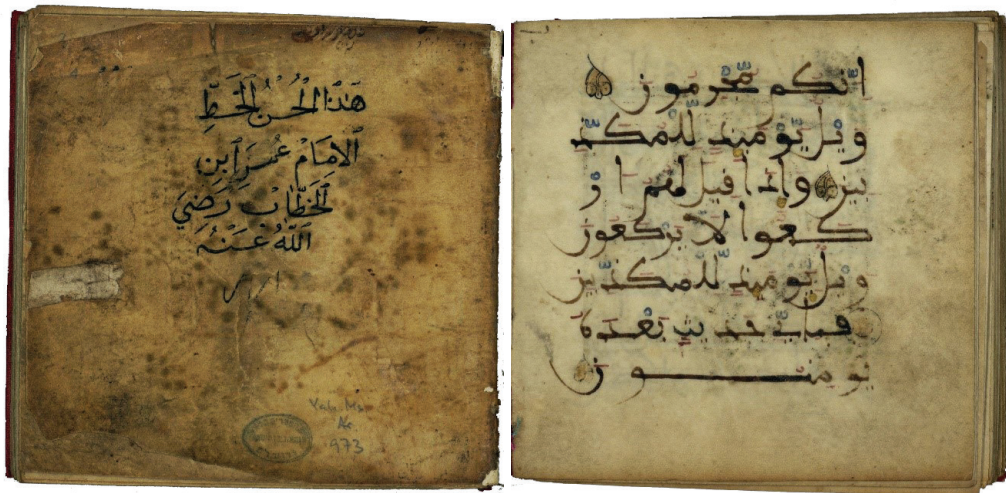 هَذَا الْحُسْنُ الْخَطِّ
الْإِمَامْ عُمَرَ ابْنِ
الْخَطَّابْ رَضِيَ
اللَّهُ عَنْهُ
Yah. Ms.
Ar.
973
إنّكم مّجرمون
ويل يومئذ للمكذّ
بين وإذا قيل لهم ار
كعوا لا يركعون
ويل يومئذ للمكذّبين
فبأىّ حديث بعده
يومنون